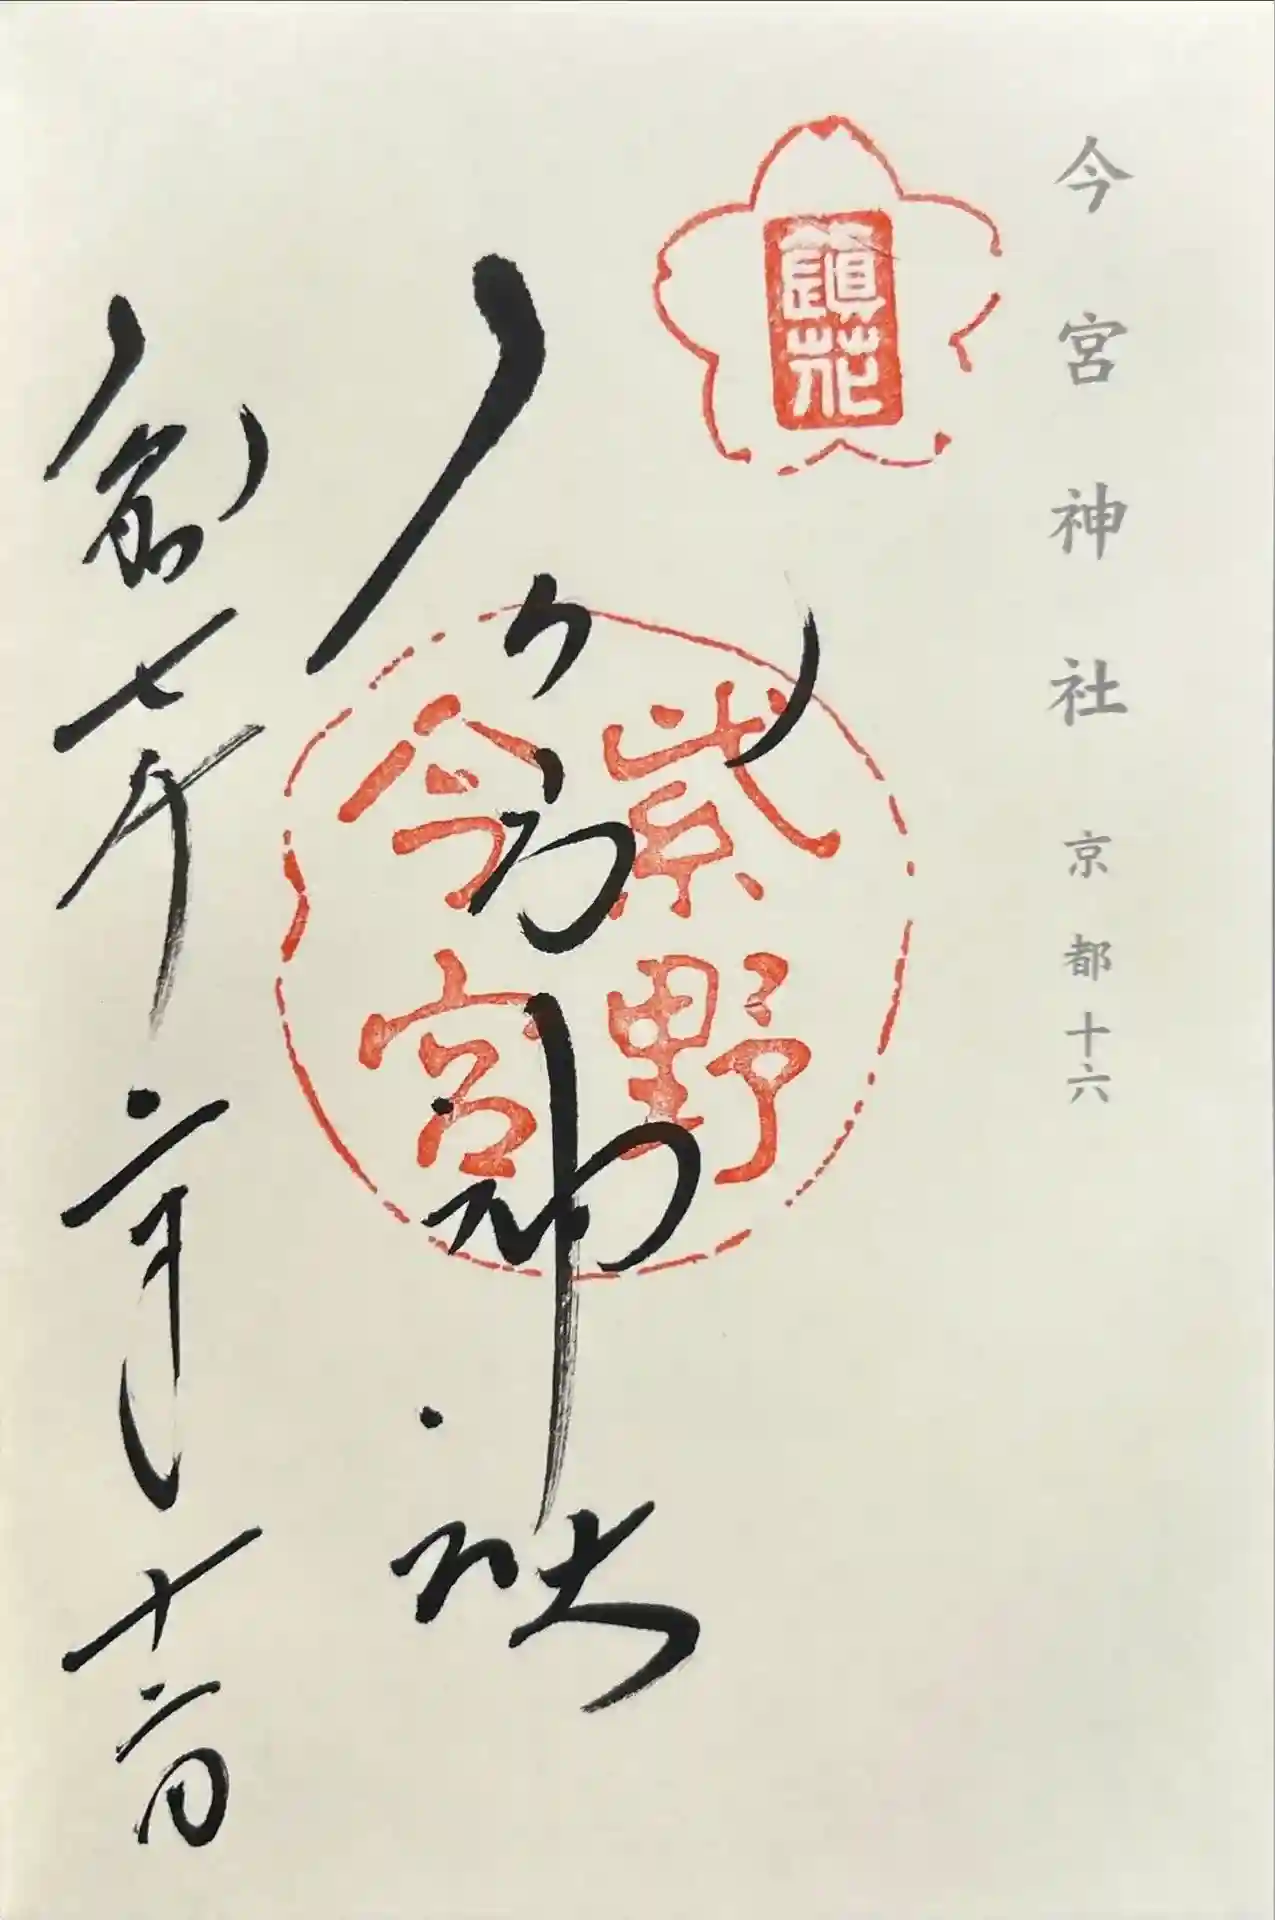 今宮神社 京都十六
鎮花
紫野
今宮
今宮神社
令和七年二月十二日